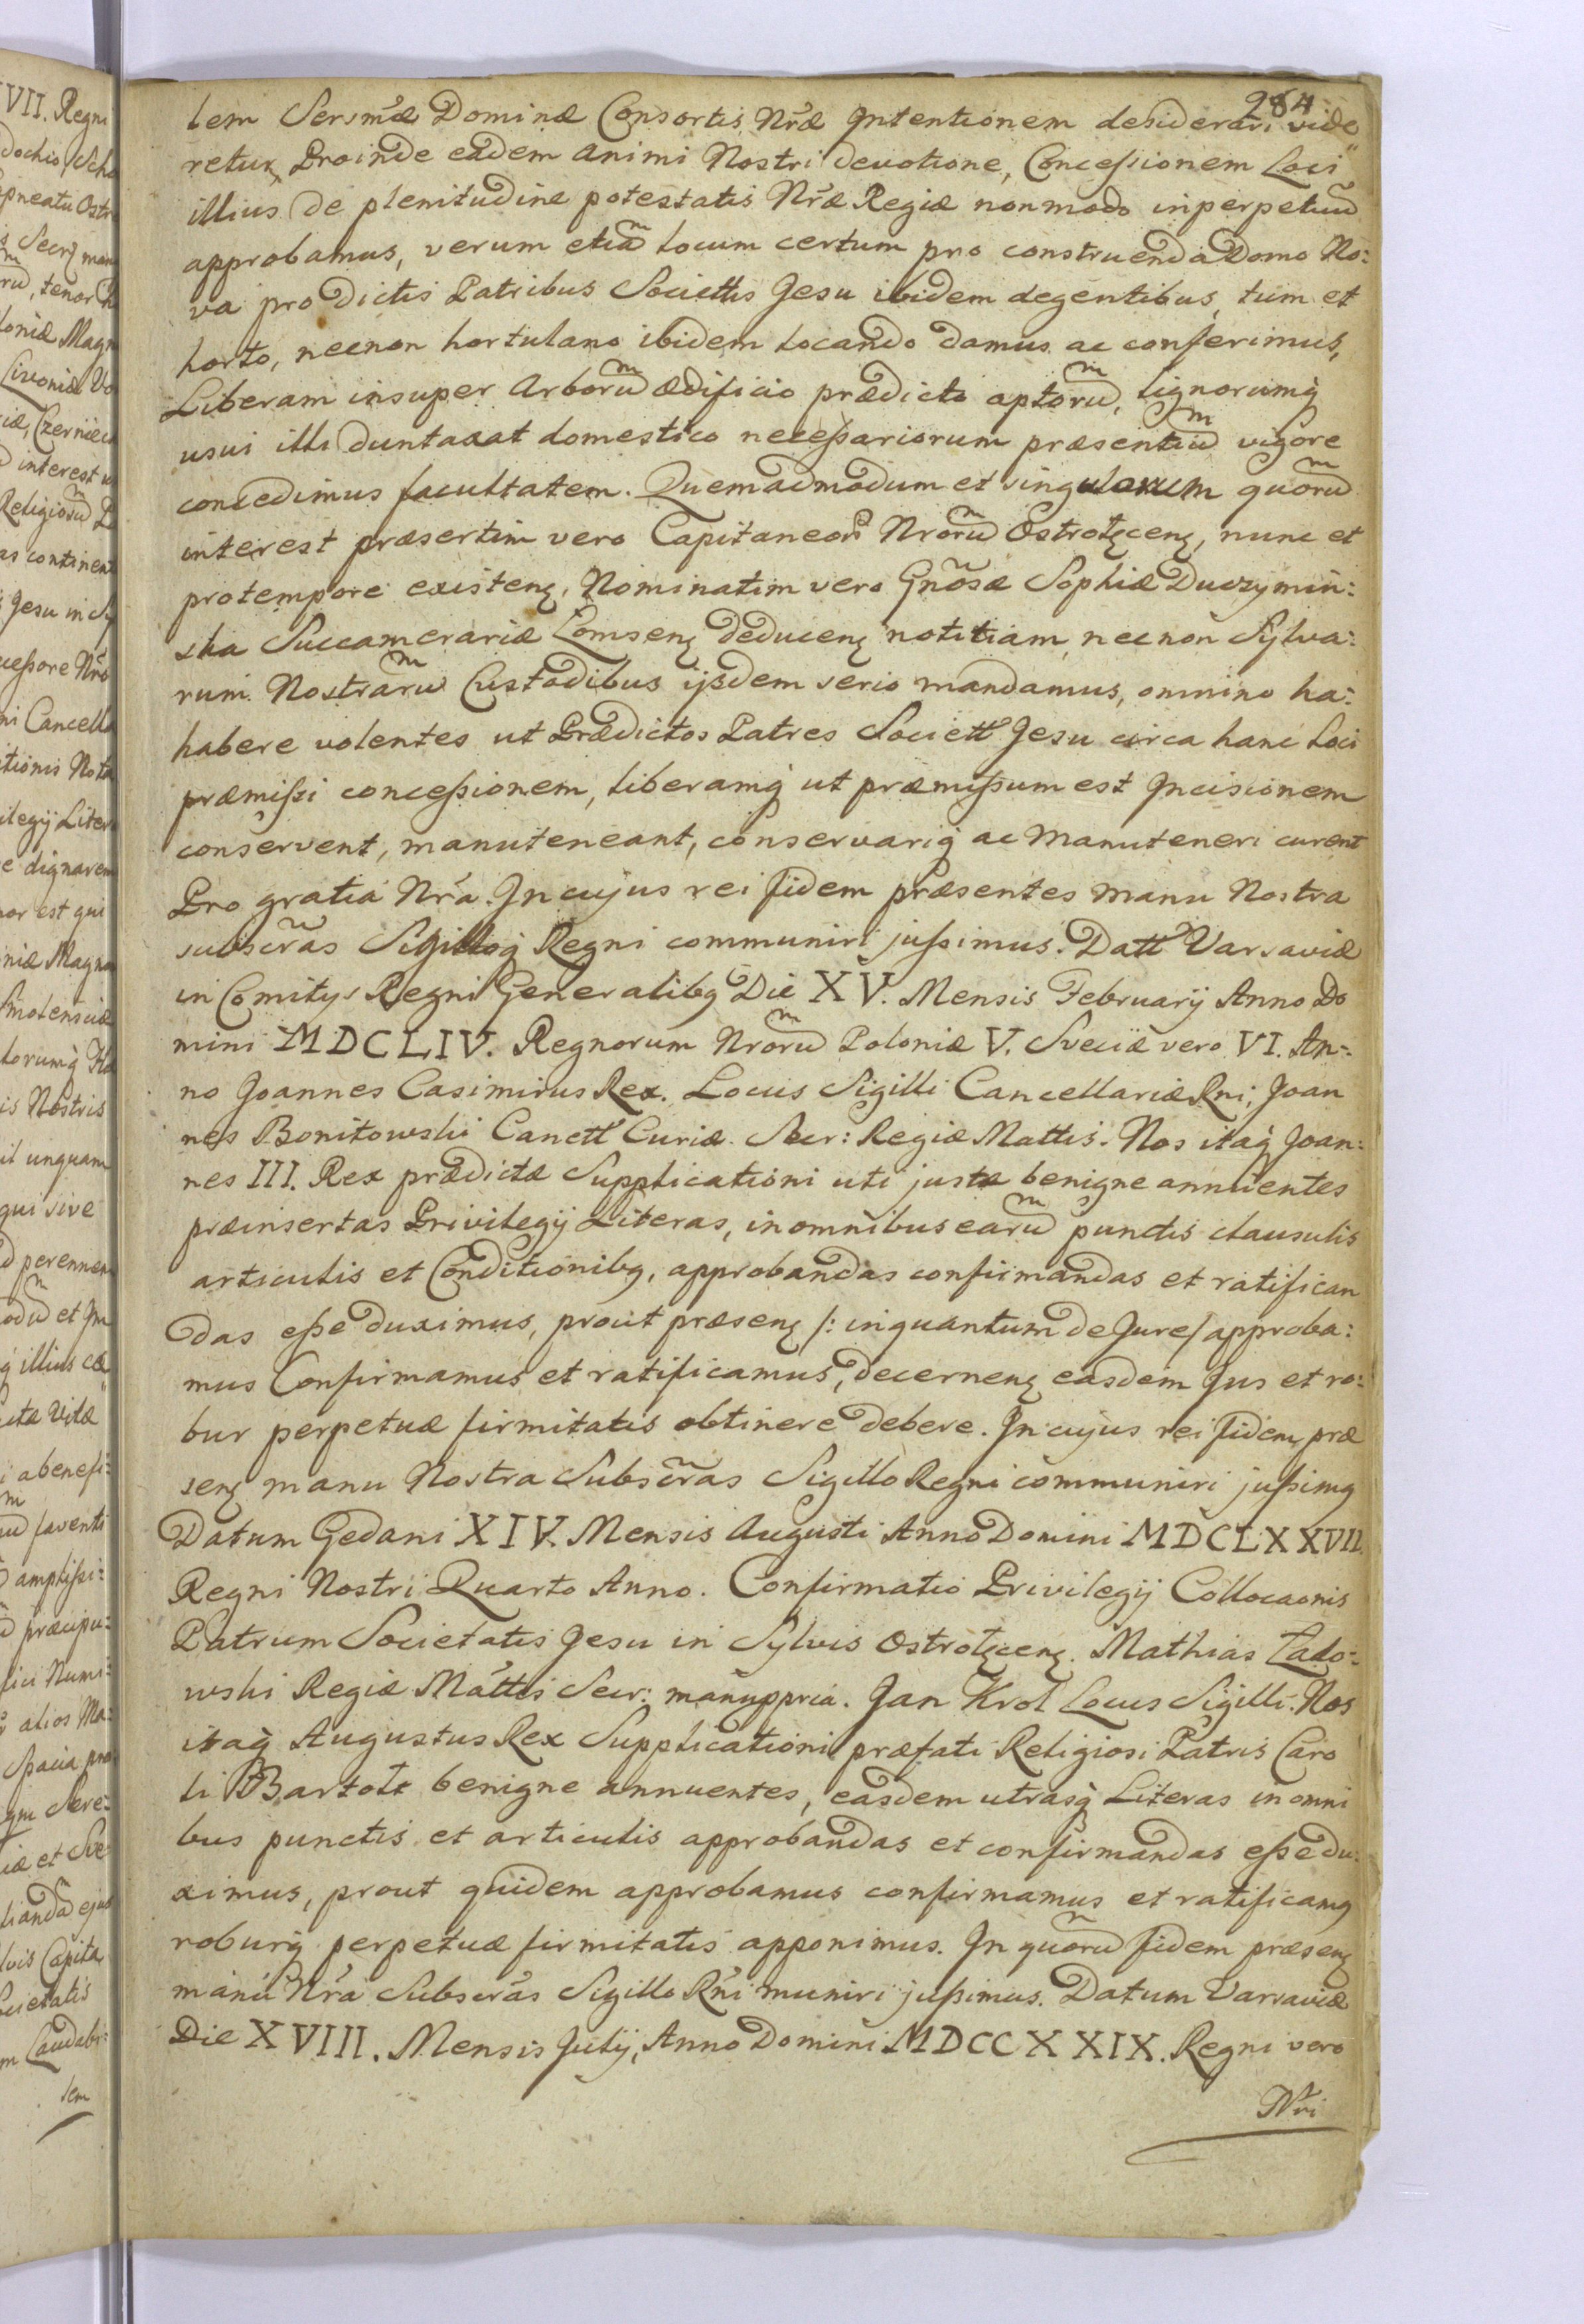 284.
lem Sersmæ Dominæ Consortis Nræ Intentionem desiderari vide
retur, Proinde eadem animi Nostri devotione, Concessionem Loci
illius de plenitudine potestatis Nræ Regiæ nonmodo inperpetuum
approbamus, verum etiam locum certum pro construenda Domo No:
va pro dictis Patribus Societtis Jesu ibidem degentibus, tum et
horto, necnon hortulano ibidem locando damus ac conferimus,
Liberam insuper arborum ædificio prædicto aptorum, lignorumq
usui illi duntaxat domestico necessariorum præsentium vigore
concedimus facultatem. Quemadmodum et singulorum quorum
interest præsertim vero Capitaneorum Nrorum Ostrołęcen, nunc et
protempore existen, Nominatim vero Gnosæ Sophiæ Duszymin:
ska Succamerariæ Lomsen deducen notitiam, necnon Sylva:
rum Nostrarum Custodibus ijsdem serio mandamus, omnino ha:
habere volentes ut Prædictos Patres Societt Jesu circa hanc Loci
præmissi concessionem, liberamq ut præmissum est Incisionem
conservent, manuteneant, conservariq ac Manuteneri curent
Pro gratia Nra. In cujus rei fidem præsentes manu Nostra
subscras Sigilloq Regni communiri jussimus. Datt Varsaviæ
in Comitijs Regni Generalibq Die XV. Mensis February Anno Do
mini MDCLIV. Regnorum Nrorum Poloniæ V. Sveciæ vero VI. An:
no Joannes Casimirus Rex. Locus Sigilli Cancellariæ Rni, Joan
nes Bonitowski Cancll Curiæ. Secr: Regiæ Mattis. Nos itaq Joan:
nes III. Rex prædictæ Supplicationi uti justæ benigne annuentes
præinsertas Privilegij Literas, in omnibus earum punctis clausulis
articulis et Conditionibq, approbandas confirmandas et ratifican
das esse duximus, prout præsen /: inquantum de Jure / approba:
mus Confirmamus et ratificamus, decernen easdem Jus et ro:
bur perpetuæ firmitatis obtinere debere. In cujus rei fidem præ
sen manu Nostra Subscras Sigillo Regni communiri jussimq
Datum Gedani XIV. Mensis Augusti Anno Domini MDCLXXVII.
Regni Nostri Quarto Anno. Confirmatio Privilegij Collocaonis
Patrum Societatis Jesu in Sylvis Ostrołęcen. Mathias Łado:
wski Regiæ Mattis Secr: manuppria. Jan Krol Locus Sigilli. Nos
itaq Augustus Rex Supplicationi præfati Religiosi Patris Caro
li Bartolt benigne annuentes, easdem utrasq Literas in omni
bus punctis et articulis approbandas et confirmandas esse du:
ximus, prout quidem approbamus confirmamus et ratificamq
roburq perpetuæ firmitatis apponimus. In quorum fidem præsen
manu Nra Subscras Sigillo Rni muniri jussimus. Datum Varsaviæ
Die XVIII. Mensis Julij, Anno Domini MDCCXXIX. Regni vero
Nri